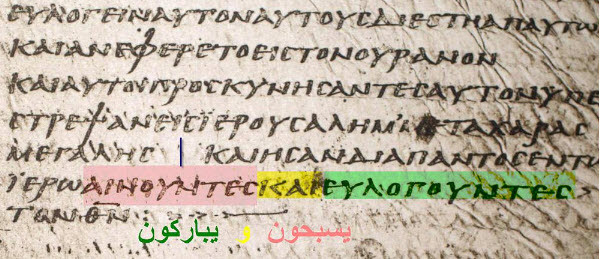 ΕΥΛΟΓΕΙΝΑΥΤΟΝΑΥΤΟΥϹΔΙΕϹΤΗΑΠΑΥΤΩ
ΚΑΙΑΝΕΦΕΡΕΤΟΕΙϹΤΟΝΟΥΡΑΝΟΝ
ΚΑΙΑΥΤΟΙΠΡΟϹΚΥΝΗϹΑΝΤΕϹΑΥΤΟΝΥΠΕ
ϹΤΡΕΨΑΝΕΙϹΙΕΡΟΥϹΑΛΗΜΜΕΤΑΧΑΡΑϹ
ΜΕΓΑΛΗϹ ΚΑΙΗϹΑΝΔΙΑΠΑΝΤΟϹΕΝΤΩ
ΙΕΡΩΑΙΝΟΥΝΤΕϹΚΑΙΕΥΛΟΓΟΥΝΤΕϹ
ΤΟΝΘ̅Ν̅
يسبحون و يباركون